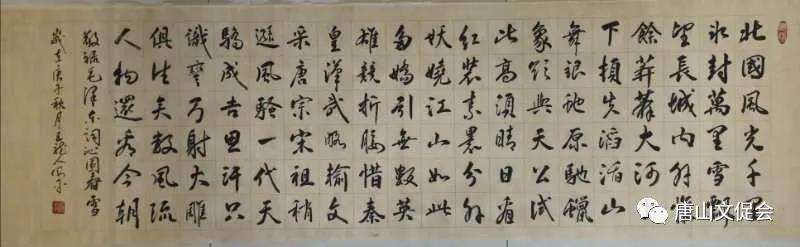 北國風光千里
冰封萬里雪飄
望長城内外惟
餘莽莽大河上
下頓失滔滔山
舞銀蛇原馳蠟
象欲與天公試
比高須晴日看
紅裝素裹分外
妖嬈江山如此
多嬌引無數英
雄競折腰惜秦
皇漢武略輸文
采唐宗宋祖稍
遜風騷一代天
驕成吉思汗只
識彎弓射大雕
俱往矣數風流
人物還看今朝
敬錄毛泽东詞沁園春雪
歲在庚子秋月
唐山文促会